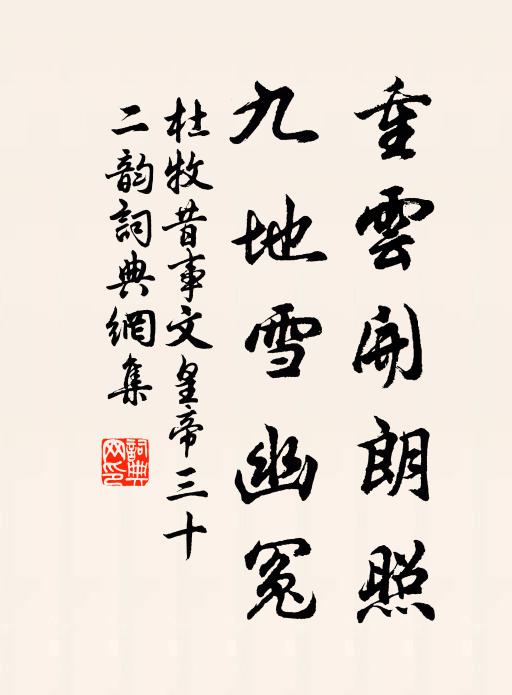 重雲開朗照
九地雪幽冤
杜牧昔事文皇帝三十
二韵詞典網集
詞典網印